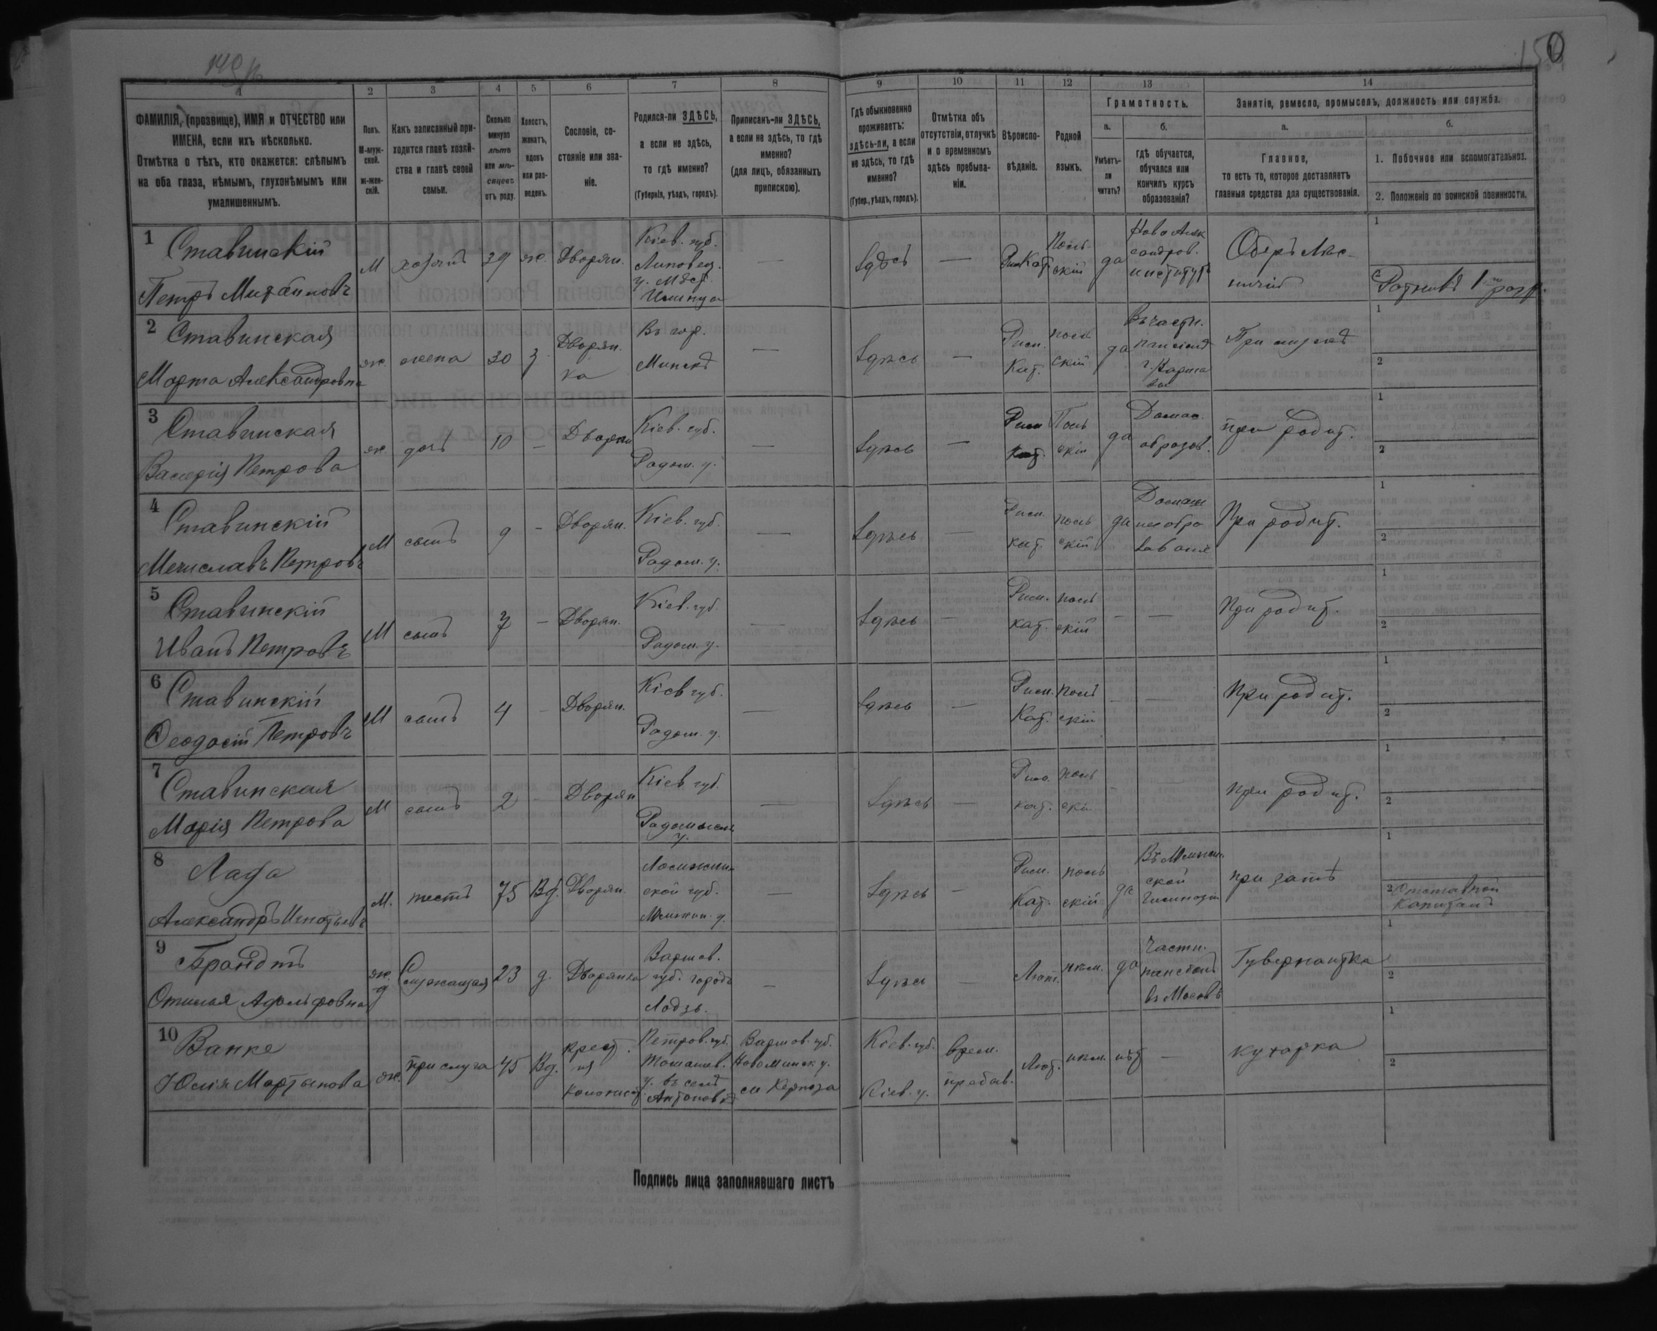 1
2
3
4
5
6
7
8
9
10
11
12
13
14
ФАМИЛІЯ, (прозвище), ИМЯ и ОТЧЕСТВО или
ИМЕНА, если ихъ нѣсколько.
Отмѣтка о тѣхъ, кто окажется: слѣпымъ
на оба глаза, нѣмымъ, глухонѣмымъ или
умалишеннымъ.
Полъ.
М-муж-
ской.
ж-жен-
скій.
Какъ записанный при-
ходится главѣ хозяй-
ства и главѣ своей
семьи.
Сколько
минуло
лѣтъ
или мѣ-
сяцевъ
отъ роду.
Холостъ,
женатъ,
вдовъ
или раз-
веденъ.
Сословіе, со-
стояніе или зва-
ніе.
Родился-ли ЗДѢСЬ,
а если не здѣсь,
то гдѣ именно?
(Губернія, уѣздъ, городъ).
Приписанъ-ли ЗДѢСЬ,
а если не здѣсь, то гдѣ
именно?
(для лицъ, обязанныхъ
припискою).
Гдѣ обыкновенно
проживаетъ:
здѣсь-ли, а если
не здѣсь, то гдѣ
именно?
(Губер., уѣздъ, городъ).
Отмѣтка объ
отсутствіи, отлучкѣ
и о временномъ
здѣсь пребыва-
ніи.
Вѣроиспо-
вѣданіе.
Родной
языкъ.
Грамотность.
а.
Умѣетъ-
ли
читать?
б.
гдѣ обучается,
обучался или
кончилъ курсъ
образованія?
Занятіе, ремесло, промыселъ, должность или служба.
а.
Главное,
то есть то, которое доставляетъ
главныя средства для существованія.
б.
1. Побочное или вспомогательное.
2. Положеніе по воинской повинности.
1 Ставинскій
Петръ М
хозяинъ
ж
Дворян.
Кіев. губ.
Липовец.
Здѣсь
—
Рим Кат
Поль
скій
да
Ново Алек
сандров.
институтъ
Оберъ Лѣс-
ничій
Ратникъ 1 разр.
2 Ставинская
Марта Александровна
ж жена 30 з
Дворян
ка
Въ гор.
Минскѣ
—
Здѣсь
—
Рим.
Кат.
поль
скій
да
Въ частн.
пансионѣ
При мужѣ
3 Ставинская
Валерія Петрова
ж дочь 10 —
Дворян
Кіев. губ.
Радом. у.
—
Здѣсь
—
Рим
Кат.
Поль
скій
да
Домаш.
образов.
при родит.
4 Ставинскій
Мечиславъ Петровъ
М сынъ 9 — Дворян.
Кіев. губ.
Радом. у.
—
Здѣсь
—
Рим.
кат.
поль
скій
да
Домаш
нее обра
зованіе
При родит.
5 Ставинскій
Иванъ Петровъ
М сынъ 7 — Дворян.
Кіев. губ.
Радом. у.
—
Здѣсь
—
Рим.
кат.
поль
скій
—
—
При родит.
6 Ставинскій
Ѳеодосій Петровъ
М сынъ 4 — Дворян.
Кіев губ.
Радом. у.
—
Здѣсь
—
Рим.
Кат.
поль
скій
—
—
При родит.
7 Ставинская
Марія Петрова
М сынъ 2 — Дворян
Кіев губ.
Радомысл.
у.
—
Здѣсь
—
Рим.
кат.
поль
ск.
при родит.
8 Лафа
Александръ
М. тесть 75 Вд. Дворян.
ской губ.
—
Здѣсь
—
Рим.
Кат.
поль
скій
да
Въ Минск.
ской
гимназіи
при зятѣ
Отставной
Капитанъ
9 Брандтъ
Отилья Адольфовна
Служащая 23 д. Дворянка
Варшав.
губ. городъ
Лодзь.
—
Здѣсь
—
Лют.
нѣм.
да
Частн.
пансіонъ
въ Москвѣ
Гувернантка
10 Ванке
Юлія Мартынова
ж. прислуга 45 Вд.
крест.
колонист.
Петров. губ.
у. въ селѣ
Антоновкѣ
Варшав. губ.
Новоминск у.
Кіев. губ.
Кіев. у.
врем.
пребыв.
Лют.
нѣм.
нѣт
—
кухарка
Подпись лица заполнявшаго листъ